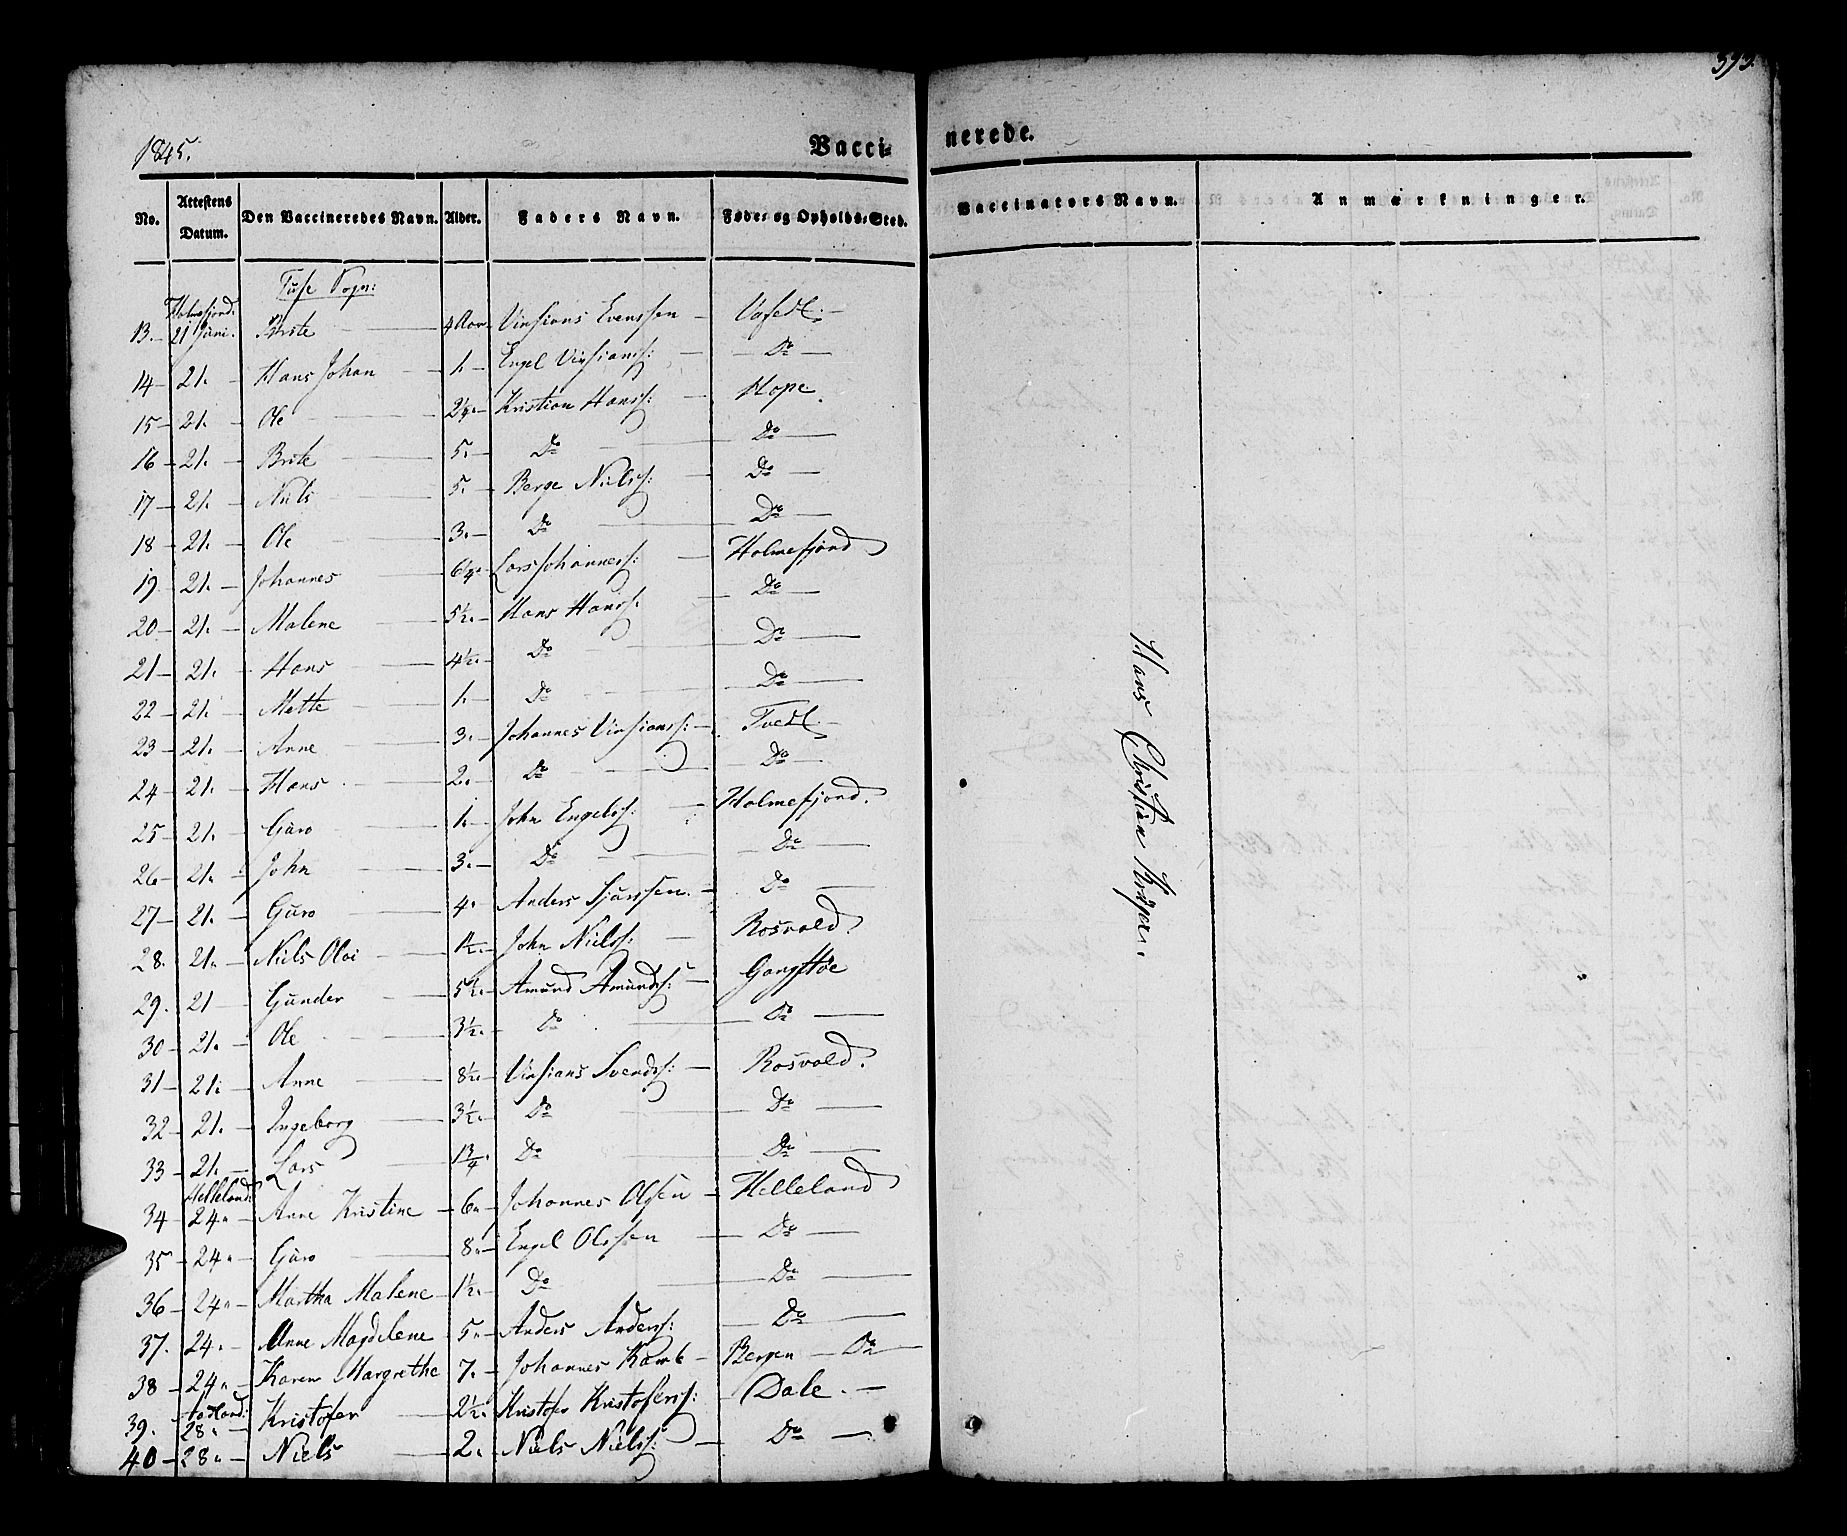 1845.
Vaccinerede.
No. Attestens Datum. Den Vaccineredes Navn. Alder. Faders Navn. Føde- og Opholds-Sted. Vaccinators Navn. Anmærkninger.
Fuse Sogn:
Holmefjord.
13. 21 Juni. Brite 4 Aar Vinsians Evenssen Vafedt.
14 21. Hans Johan 1. Engel Vinsianss: Do
15 21. Ole 2¼. Kristian Hanss: Hope.
16 21. Brite 5. Do Do
17 21. Niels 5. Berge Nielss: Do
18 21. Ole 3. Do Do
19. 21. Johannes 6¼. Lars Johanness: Holmefjord
20 21. Malene 5½. Hans Hanss: Do
21 21. Hans 4½. Do Do
22 21. Mette 1. Do Do
23 21. Anne 3. Johannes Vinsianss: Tvedt.
24 21. Hans 2. Do Do
25 21. Guro 1. John Engelss: Holmefjord.
26 21. John 3. Do Do
27 21. Guro 4. Anders Sjurssen Do
28. 21. Niels Olai 1½. John Nielss: Rosvold.
29. 21 Gunder 5½. Amund Amundss: Gangstøe
30 21. Ole 3½. Do Do
31 21. Anne 8½. Vinsians Svendss: Rosvold.
32 21. Ingeborg 3½. Do Do
33 21. Lars 1¾. Do Do
Helleland.
34 24. Anne Kristine 6. Johannes Olsen Helleland
35 24. Guro 8. Engel Olssen Do
36 24. Martha Malene 1½. Do Do
37. 24. Anne Magdelene 5. Anders Anderss: Do
38 24. Karen Margrethe 7. Johannes Kamb Bergen Do
39. 28. Kristofer 2½. Kristofer Kristoferss: Dale.
40 28. Niels 2. Niels Nielss: Do
Hans Christian Krüger.